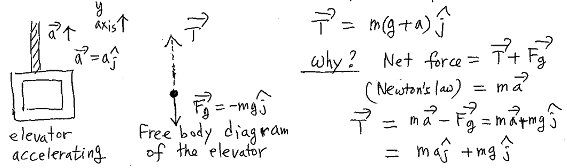 y
axis↑
a⃗↑
a⃗ = aĵ
elevator
accelerating
T⃗
F⃗g = −mgĵ
Free body diagram
of the elevator
T⃗ = m(g+a)ĵ
Why? Net force = T⃗ + F⃗g
(Newton's law) = ma⃗
T⃗ = ma⃗ − F⃗g = ma⃗ + mgĵ
= maĵ + mgĵ